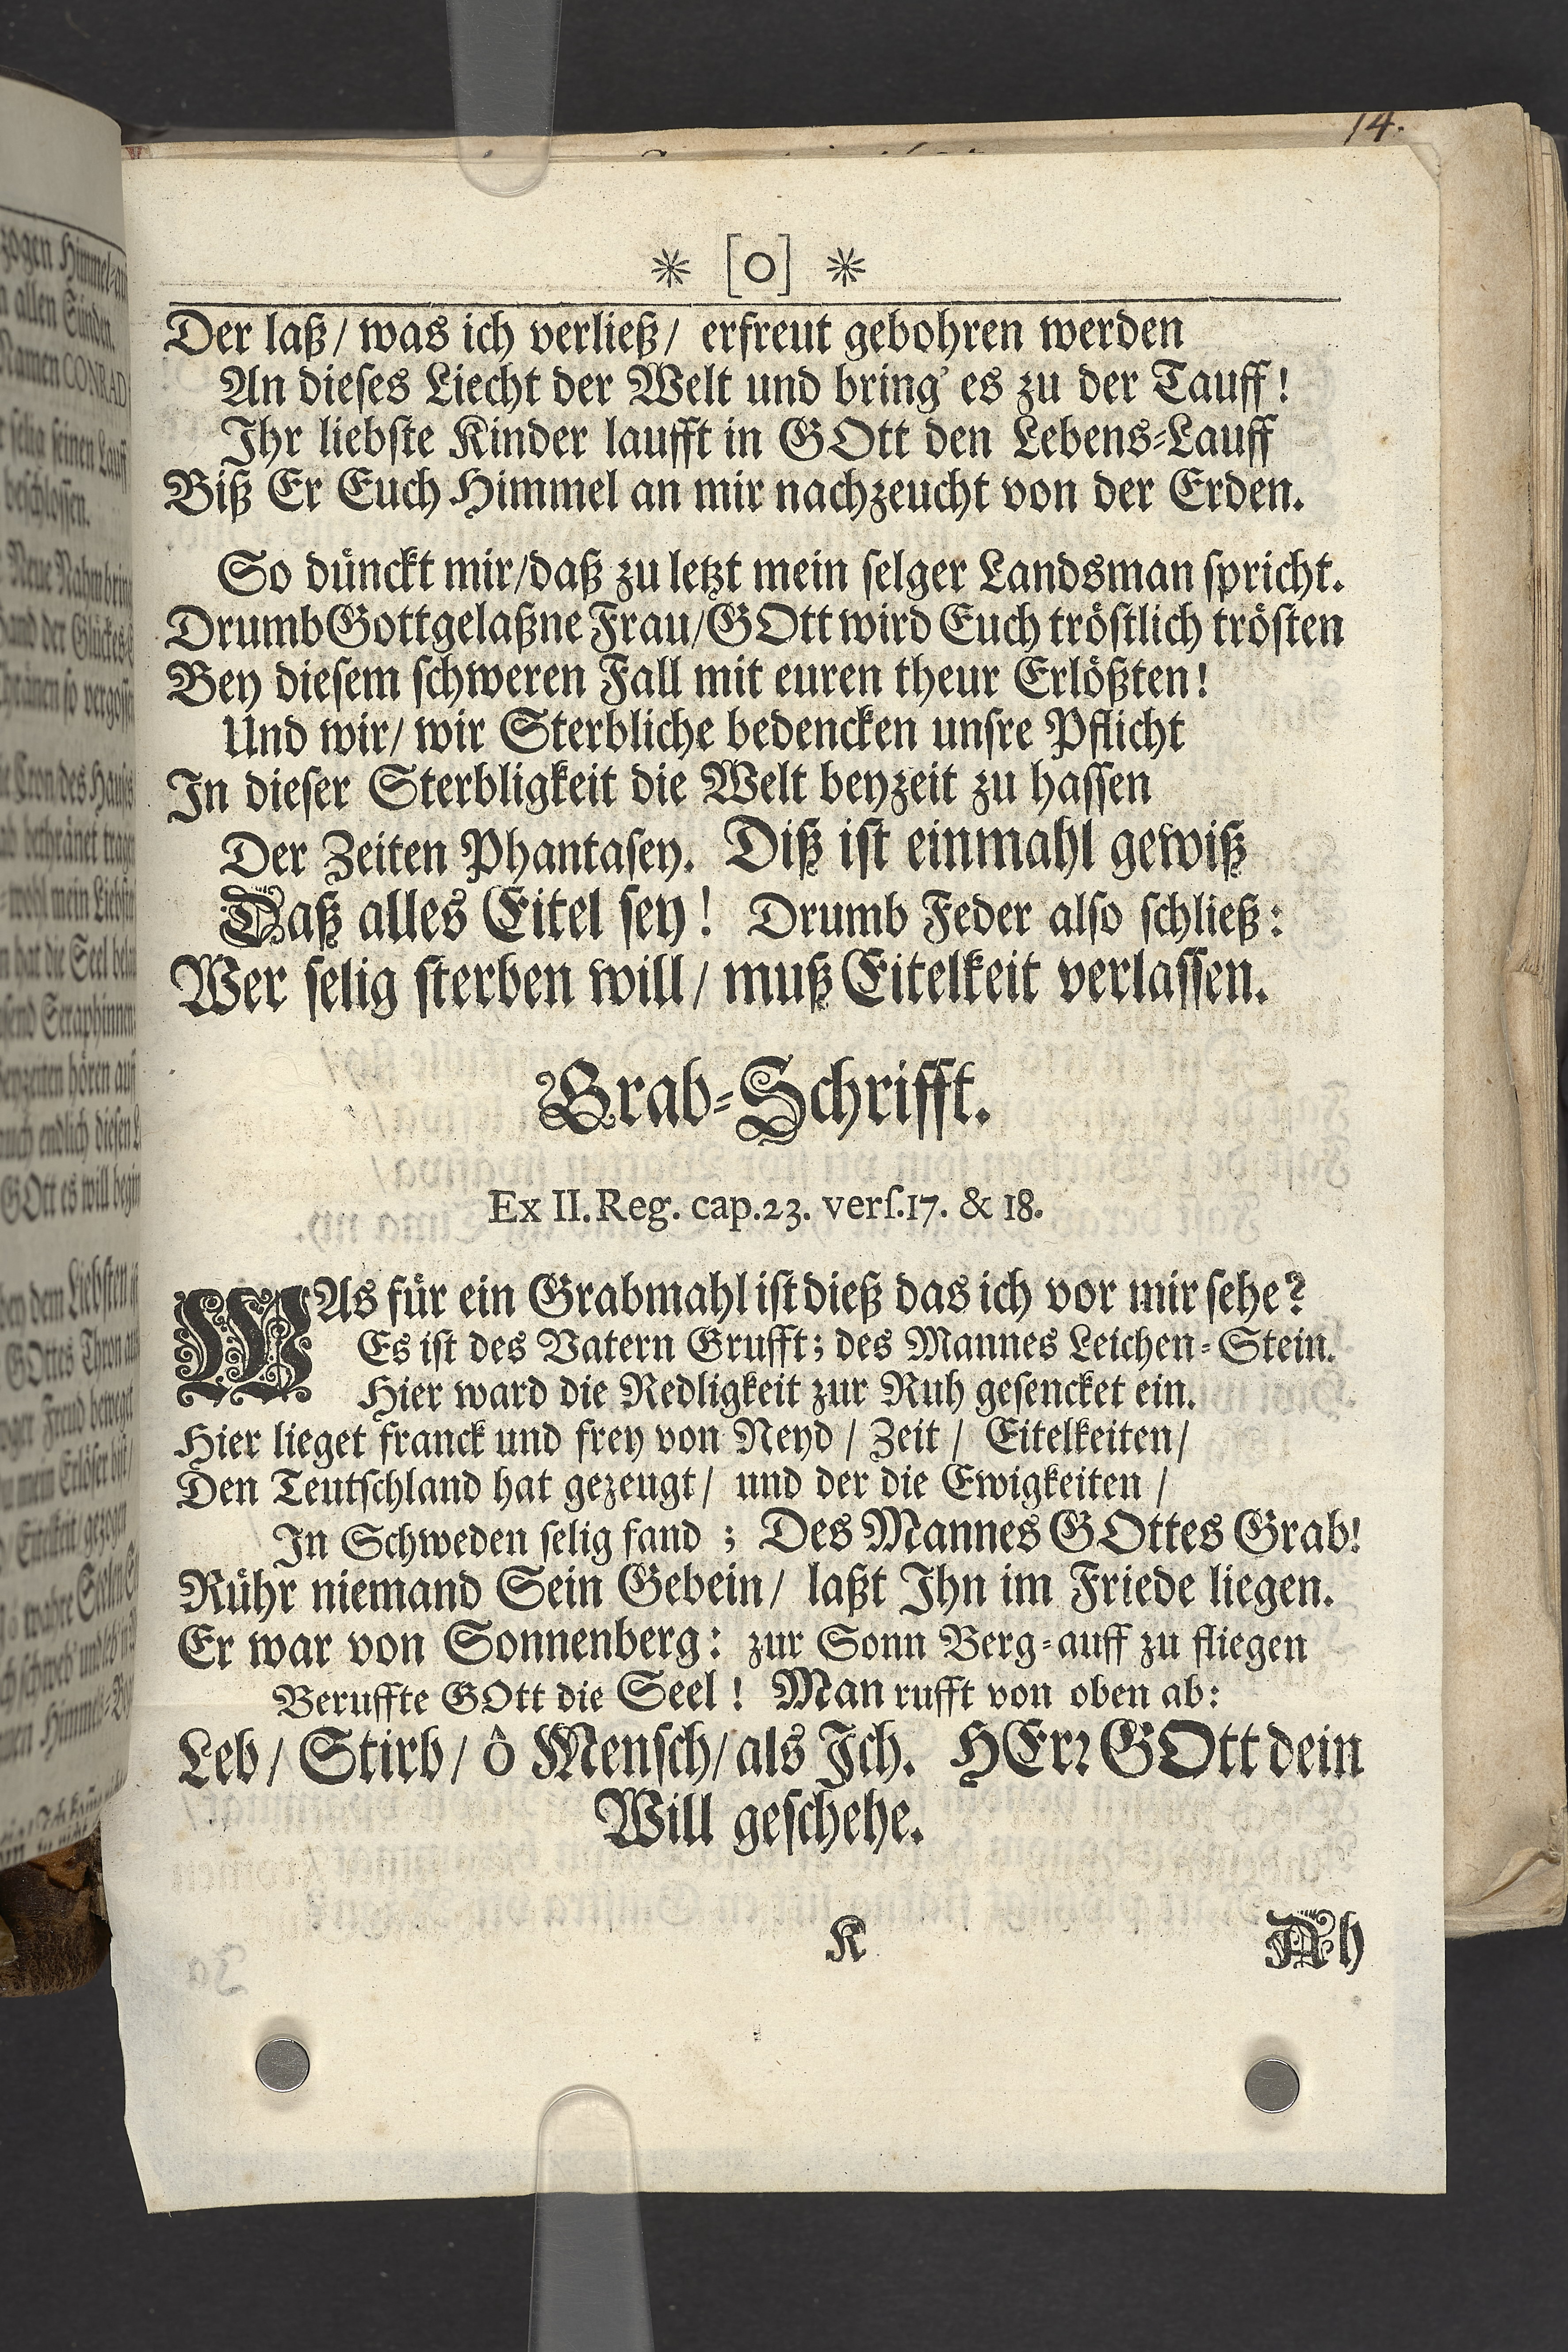 14.
* [o] *
Der laß/ was ich verließ/ erfreut gebohren werden
An dieses Liecht der Welt und bring' es zu der Tauff!
Ihr liebste Kinder laufft in GOtt den Lebens-Lauff
Biß Er Euch Himmel an mir nachzeucht von der Erden.
So dünckt mir/daß zu letzt mein selger Landsman spricht.
Drumb Gottgelaßne Frau/GOtt wird Euch tröstlich trösten
Bey diesem schweren Fall mit euren theur Erlößten!
Und wir/ wir Sterbliche bedencken unsre Pflicht
In dieser Sterbligkeit die Welt beyzeit zu hassen
Der Zeiten Phantasey. Diß ist einmahl gewiß
Daß alles Eitel sey! Drumb Feder also schließ:
Wer selig sterben will/ muß Eitelkeit verlassen.
Grab-Schrifft.
Ex II. Reg. cap. 23. vers. 17. & 18.
WAs für ein Grabmahl ist dieß das ich vor mir sehe?
Es ist des Vatern Grufft; des Mannes Leichen-Stein.
Hier ward die Redligkeit zur Ruh gesencket ein.
Hier lieget franck und frey von Neyd / Zeit / Eitelkeiten/
Den Teutschland hat gezeugt/ und der die Ewigkeiten /
In Schweden selig fand ; Des Mannes GOttes Grab!
Rühr niemand Sein Gebein/ laßt Ihn im Friede liegen.
Er war von Sonnenberg: zur Sonn Berg-auff zu fliegen
Beruffte GOtt die Seel! Man rufft von oben ab:
Leb/ Stirb/ ô Mensch/ als Ich. HErr GOtt dein
Will geschehe.
K
Ah